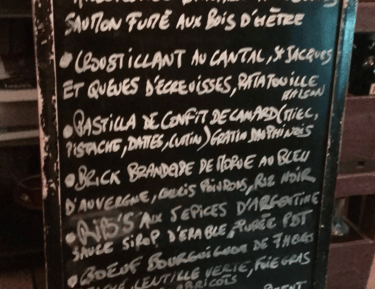 SAUMON FUMÉ AUX BOIS D'HÊTRE
• CROUSTILLANT AU CANTAL, ST JACQUES
ET QUEUES D'ÉCREVISSES, RATATOUILLE
MAISON
• PASTILLA DE CONFIT DE CANARD (MIEL,
PISTACHE, DATTES, CUMIN) GRATIN DAUPHINOIS
• BRICK BRANDADE DE MORUE AU BLEU
D'AUVERGNE, POIVRONS, RIZ NOIR
• RIB'S AUX 5 EPICES D'ARGENTINE
SAUCE SIROP D'ERABLE, PURÉE PDT
• BOEUF BOURGUIGNON DE 7 HEURES
LENTILLE VERTE, FOIE GRAS
ABRICOTS